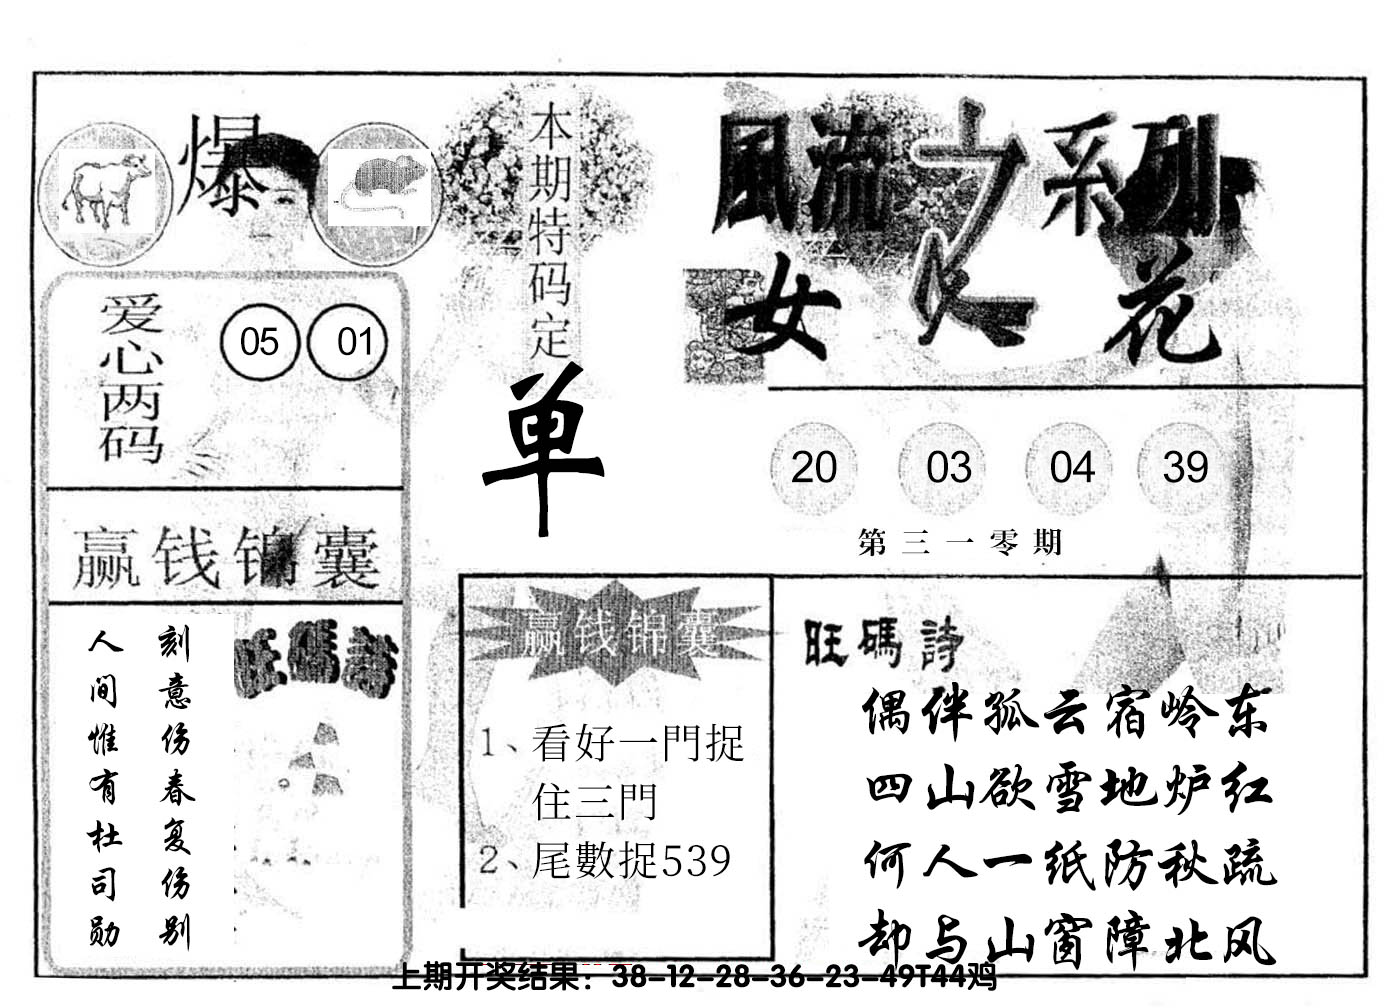 爆
本期特码定
单
風流之系列
女人花
爱心两码
05 01
20 03 04 39
第三一零期
赢钱锦囊
刻意伤春复伤别
人间惟有杜司勋
旺碼詩
赢钱锦囊
1、看好一門捉
住三門
2、尾數捉539
旺碼詩
偶伴孤云宿岭东
四山欲雪地炉红
何人一纸防秋疏
却与山窗障北风
上期开奖结果：38-12-28-36-23-49T44鸡